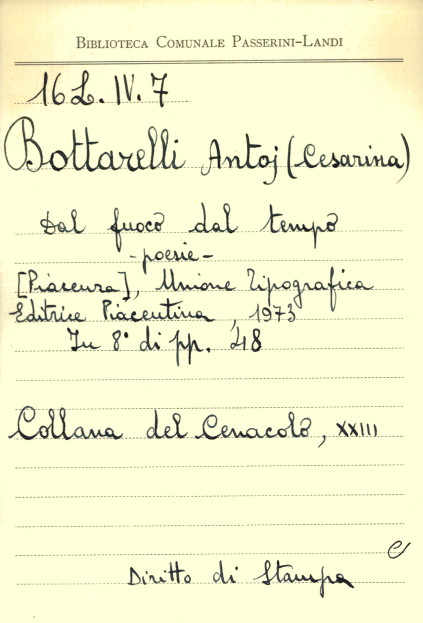 BIBLIOTECA COMUNALE PASSERINI-LANDI
16 L. IV. 7
Bottarelli Antoj (Cesarina)
Dal fuoco dal tempo
- poesie -
[Piacenza], Unione Tipografica
Editrice Piacentina, 1973
In 8° di pp. 48
Collana del Cenacolo, XXIII
Diritto di Stampa